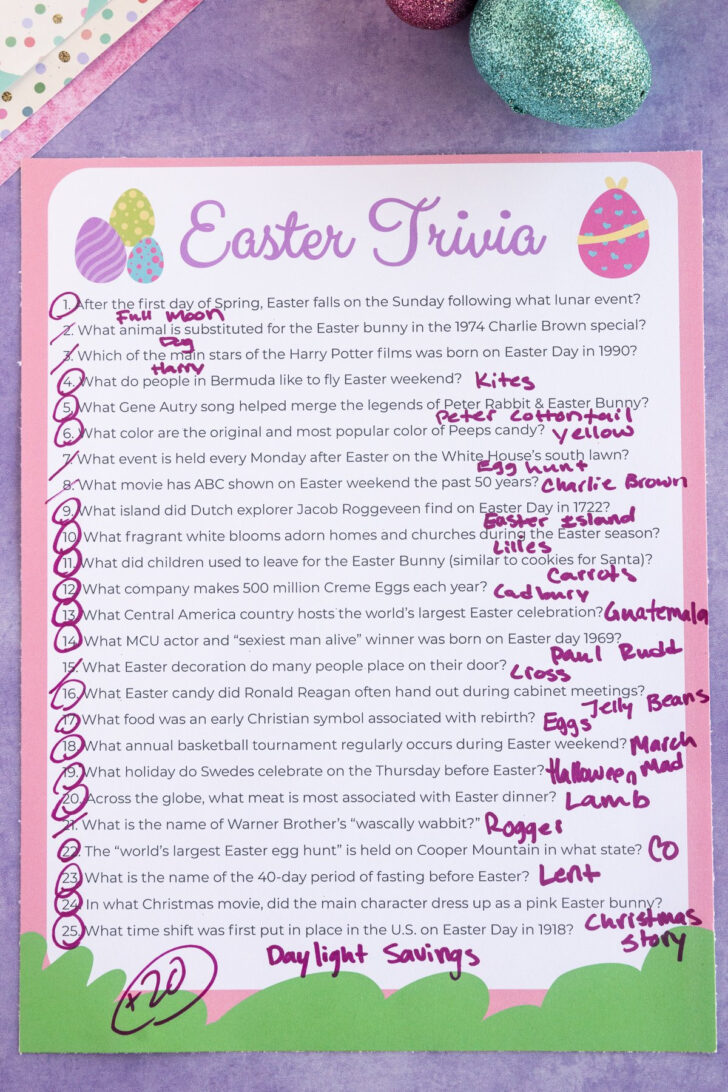 Easter Trivia
1. After the first day of Spring, Easter falls on the Sunday following what lunar event?
Full Moon
2. What animal is substituted for the Easter bunny in the 1974 Charlie Brown special?
Dog
3. Which of the main stars of the Harry Potter films was born on Easter Day in 1990?
Harry
4. What do people in Bermuda like to fly Easter weekend? Kites
5. What Gene Autry song helped merge the legends of Peter Rabbit & Easter Bunny?
Peter Cottontail
6. What color are the original and most popular color of Peeps candy? Yellow
7. What event is held every Monday after Easter on the White House's south lawn?
Egg hunt
8. What movie has ABC shown on Easter weekend the past 50 years? Charlie Brown
9. What island did Dutch explorer Jacob Roggeveen find on Easter Day in 1722?
Easter Island
10. What fragrant white blooms adorn homes and churches during the Easter season?
Lilies
11. What did children used to leave for the Easter Bunny (similar to cookies for Santa)?
Carrots
12. What company makes 500 million Creme Eggs each year? Cadbury
13. What Central America country hosts the world's largest Easter celebration? Guatemala
14. What MCU actor and "sexiest man alive" winner was born on Easter day 1969?
Paul Rudd
15. What Easter decoration do many people place on their door? Cross
16. What Easter candy did Ronald Reagan often hand out during cabinet meetings?
Jelly Beans
17. What food was an early Christian symbol associated with rebirth? Eggs
18. What annual basketball tournament regularly occurs during Easter weekend? March
Mad
19. What holiday do Swedes celebrate on the Thursday before Easter? Halloween
20. Across the globe, what meat is most associated with Easter dinner? Lamb
21. What is the name of Warner Brother's "wascally wabbit?" Rogger
22. The "world's largest Easter egg hunt" is held on Cooper Mountain in what state? CO
23. What is the name of the 40-day period of fasting before Easter? Lent
24. In what Christmas movie, did the main character dress up as a pink Easter bunny?
Christmas
Story
25. What time shift was first put in place in the U.S. on Easter Day in 1918?
Daylight Savings
+20